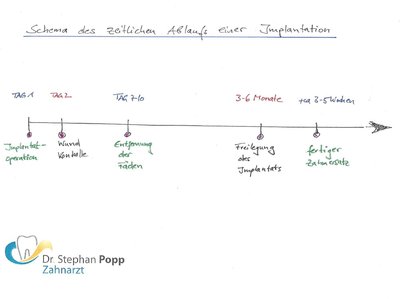 Schema des zeitlichen Ablaufs einer Implantation
TAG 1
TAG 2
TAG 7-10
3-6 Monate
+ca 3-5 Wochen
Implantat-
operation
Wund
Kontrolle
Entfernung
der
Fäden
Freilegung
des
Implantats
fertiger
Zahnersatz
Dr. Stephan Popp
Zahnarzt